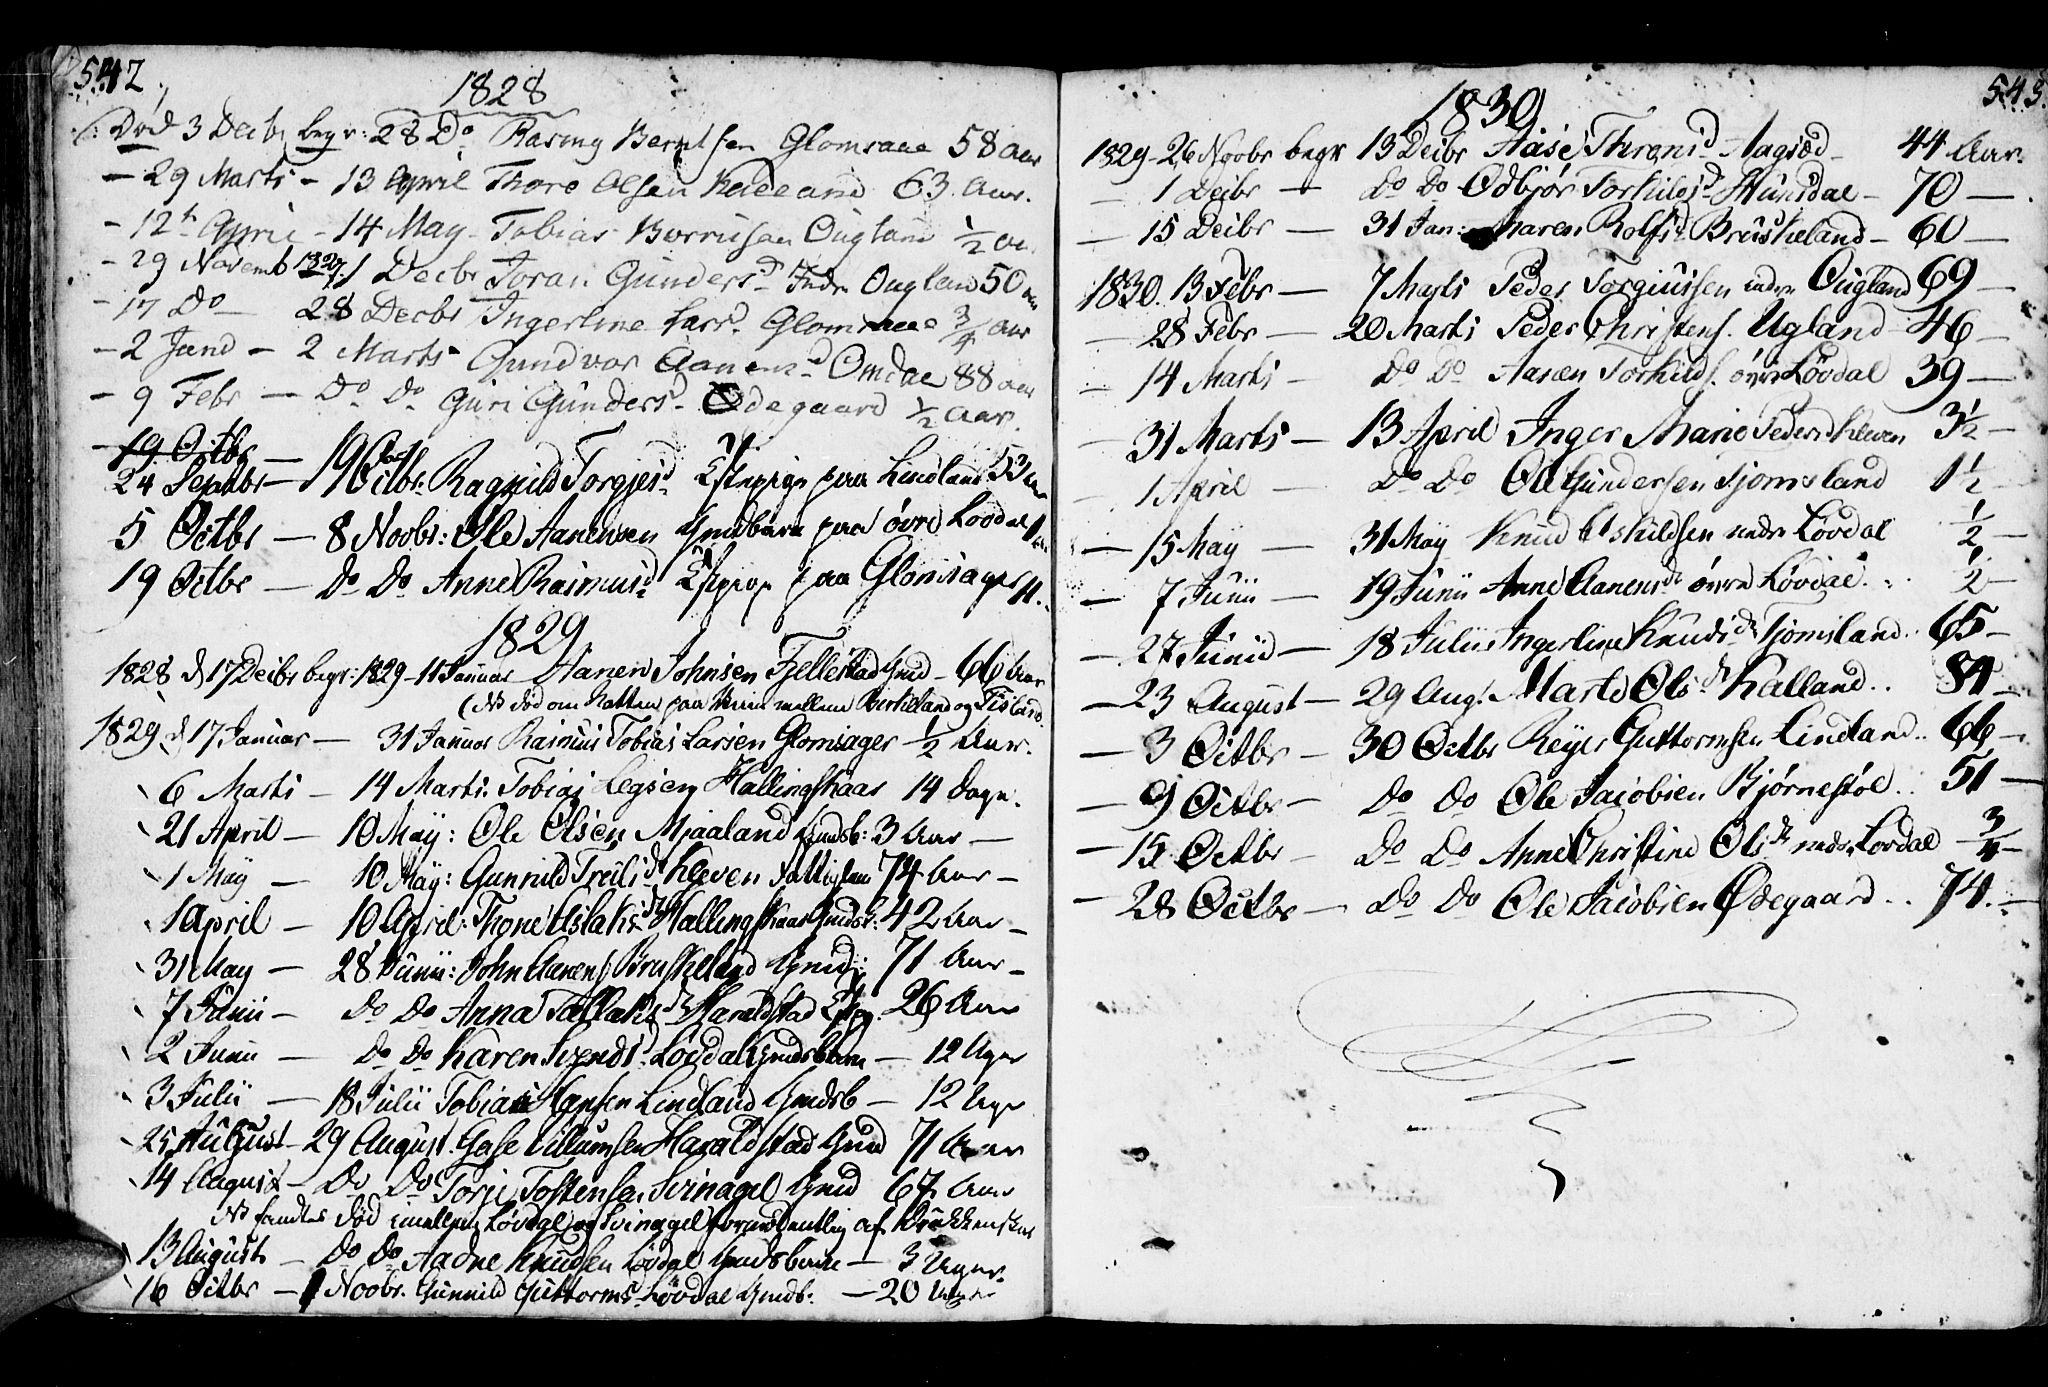 542
1828
Död 3 Decbr begr: 28 Do Rasmg Berntsen Glomsaae 58 Aar
- 29 Marts - 13 April Thore Olsen Kalland 63 Aar.
- 12te April - 14 May - Tobias Ougland ½ Aa.
- 29 Novemb 1827 / 1 Decbr Joran Gundersd Indr Ougland 50 Aar
- 17 Do - 28 Decbr Ingerline Larsd. Glomsaae ¾ Aar
- 2 Jand - 2 Marts Gundvor Aanensd Omdal 88 Aar
- 9 Febr - Do Do Guri Gundersd - Ødegaard ½ Aar.
19 Octbr
24 Septbr - 19 Octbr. Ragnild Torgjesd paa Lindland 53 Aar
5 Octbr - 8 Novbr: Ole Aanensen Gmdbarn paa øvre Lovdal 1
19 Octbr - Do Do Anne Rasmusd paa Glomsager 11.
1829
1828 d 17 Decbr begr: 1829 - 11 Januar Aanen Johnsen Fjellestad Gmd - 66 Aar
(NB död om Natten paa Veien mellem Birkeland og
1829 d 17 Januar - 31 Januar Rasmus Tobias Larsen Glomsager - ½ Aar.
6 Marts - 14 Marts. Tobias Hallingskaar 14 Dage.
21 April - 10 May: Ole Olsen Mjaaland Gmdsb: 3 Aar -
1 May - 10 May: Gunnild Kleven Fattiglem 74 Aar -
1 April - 10 April: Aslaksd Hallingskaar Gmdsk: 42 Aar -
31 May - 28 Junii: John Aanens. Bruskeland Gmd: 71 Aar -
7 Junii - Do Do Anna Tallaksd Haraldstad 26 Aar
2 Junii - Do Do Karen Svendsd Løvdal Gmdsbarn - 12 Uger
3 Julii - 18 Julii Tobias Hansen Lindland Gmdsb - 12 Uger
25 August - 29 August. Haraldstad Gmd 71 Aar
14 August - Do Do Torje Tostensen Svinagel Gmd 67 Aar
NB fandtes död imellem Løvdal og Svinagel formodentlig af Drukkenskab
13 August - Do Do Aadne Knudsen Løvdal Gmdsbarn - 3 Uger.
16 Octbr - 1 Novbr. Gunnild Guttormsd Løvdal Gmdb: - 20 Uger
543.
1830
1829 - 26 Novbr begr 13 Decbr Aase Thronsd Aagsød - 44 Aar.
- 1 Decbr - Do Do Odbjör Torkilsd Hunsdal - 70 -
- 15 Decbr - 31 Jan: Maren Rolfsd Bruskeland - 60 -
1830. 13 Febr - 7 Marts Peder Torgiussen indre Ougland 69 -
- 28 Febr - 20 Marts Peder Christens. Ugland - 46 -
- 14 Marts - Do Do Aanen Torkilds. øvre Løvdal 39 -
- 31 Marts - 13 April Inger Marie Pedersd Kleven 3½ -
- 1 April - Do Do Ole Gundersen Tjomsland 1½ -
- 15 May - 31 May Knud Eskildsen nedre Løvdal ½ -
- 7 Junii - 19 Junii Anne Aanensdr øvre Løvdal. ½ -
- 27 Junii - 18 Julii Ingerline Knudsdr Tjomsland.. 65 -
- 23 August - 29 Aug. Marte Olsdr Kalland.. 81 -
- 3 Octbr - 30 Octbr Reyer Guttormsen Lindland.. 66 -
- 9 Octbr - Do Do Ole Jacobsen Bjørnestøl.. 51 -
- 15 Octbr - Do Do Anne Christine Olsdr nedre Løvdal ¾ -
- 28 Octbr - Do Do Ole Jacobsen Ødegaard.. 74. -